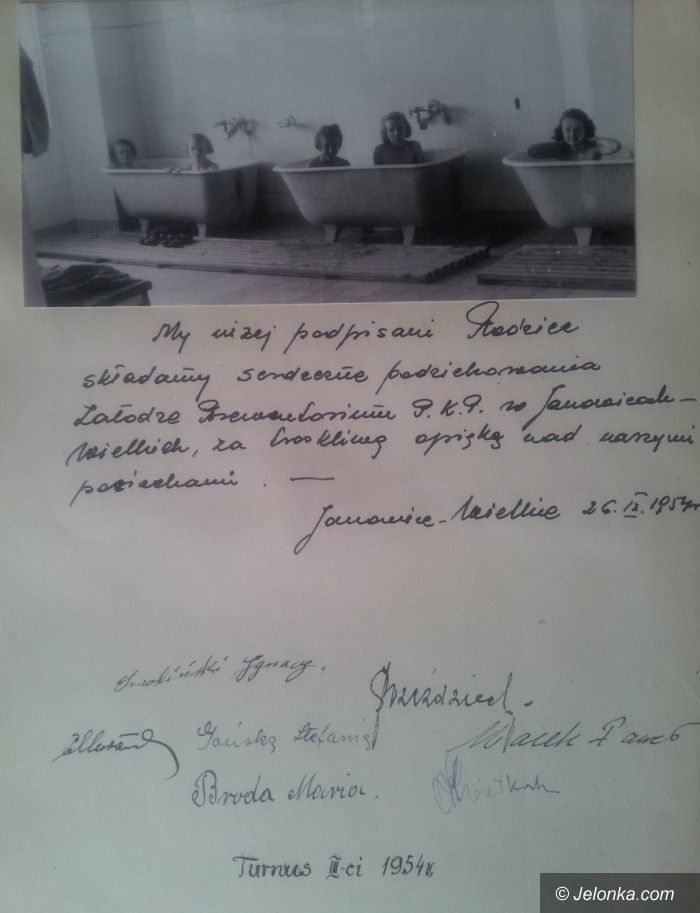 My niżej podpisani Rodzice
składamy serdeczne podziękowania
Załodze Prewentorium P.K.P. w Janowicach-
Wielkich, za troskliwą opiękę nad naszymi
pociechami. —
Janowice-Wielkie 26.IX.1954r
Ignacy.
Stefania
Marek
Broda Maria.
Turnus III-ci 1954r.
© Jelonka.com